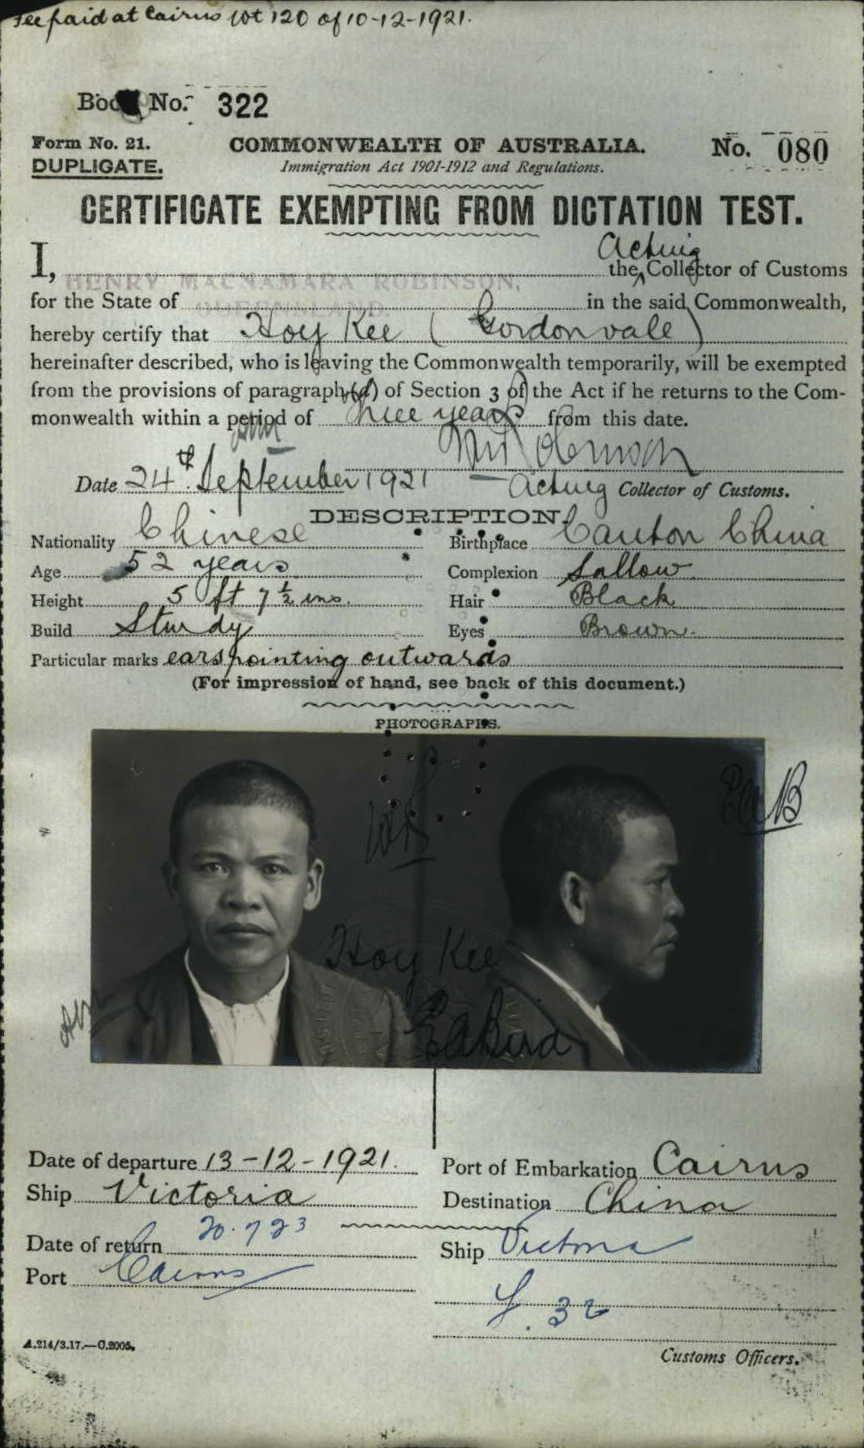 Fee paid at Cairns Wt 120 of 10-12-1921.
Book No. 322
Form No. 21.
DUPLICATE.
COMMONWEALTH OF AUSTRALIA.
Immigration Act 1901-1912 and Regulations.
No. 080
CERTIFICATE EXEMPTING FROM DICTATION TEST.
Acting
I, HENRY MACNAMARA ROBINSON, the Collector of Customs
for the State of QUEENSLAND in the said Commonwealth,
hereby certify that Hoy Kee (Gordonvale)
hereinafter described, who is leaving the Commonwealth temporarily, will be exempted
from the provisions of paragraph (a) of Section 3 of the Act if he returns to the Com-
monwealth within a period of three years from this date.
Date 24th September 1921
Acting Collector of Customs.
DESCRIPTION.
Nationality Chinese Birthplace Canton China
Age 52 years Complexion Sallow
Height 5 ft 7 1/2 ins. Hair Black
Build Sturdy Eyes Brown.
Particular marks ears pointing outwards
(For impression of hand, see back of this document.)
PHOTOGRAPHS.
Hoy Kee
Date of departure 13-12-1921. Port of Embarkation Cairns
Ship Victoria Destination China
Date of return 20.7 23 Ship Victoria
Port Cairns
32
A.214/3.17.—C.2005.
Customs Officers.